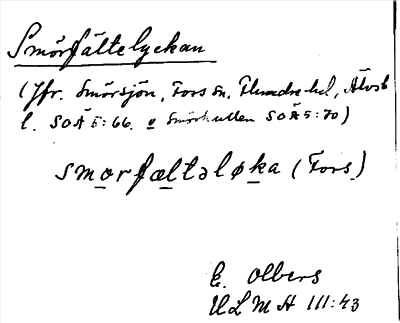 Smörfältelyckan
(Jfr. Smörsjön, Fors sn, Flundre hd, Älvsb
l. SOÄ 5:66. o Smörkullen SOÄ 5:70)
smorfæltəløka (Fors)
E. Olbers
ULMA 111:43